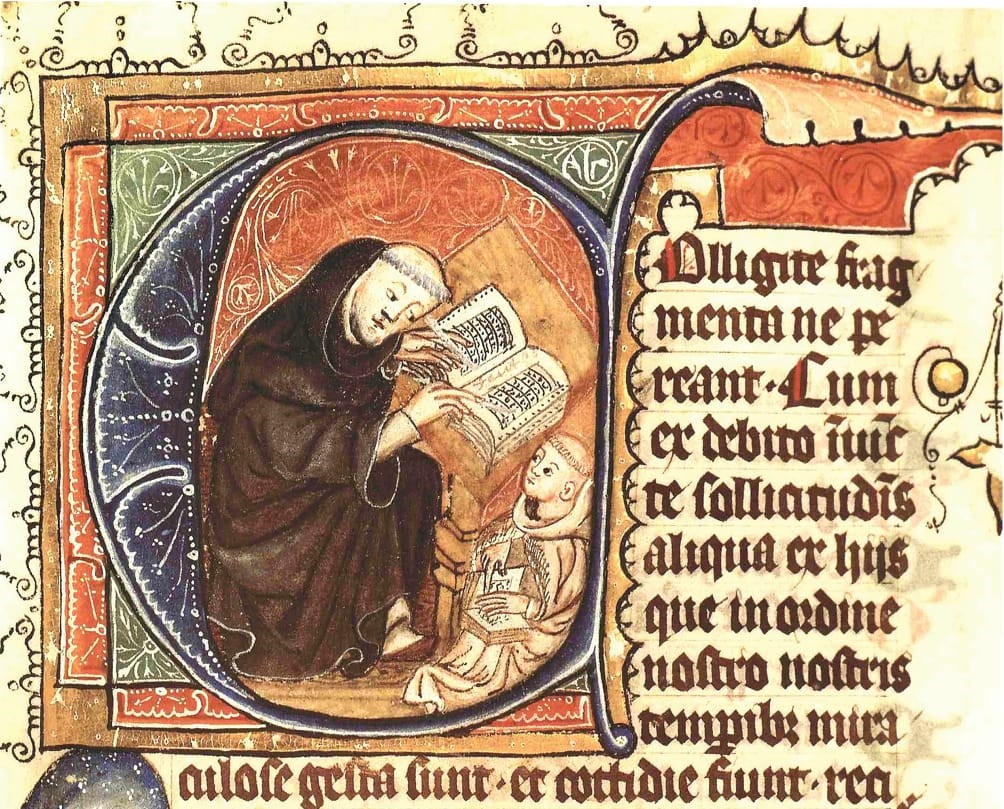 COlligite frag
menta ne pe
reant· Cum
ex debito īiūc
te sollicitudīs
aliqua ex hijs
que in ordine
nostro nostris
temꝑibꝫ mira
culose gesta sunt· et cottidie fiunt· reci